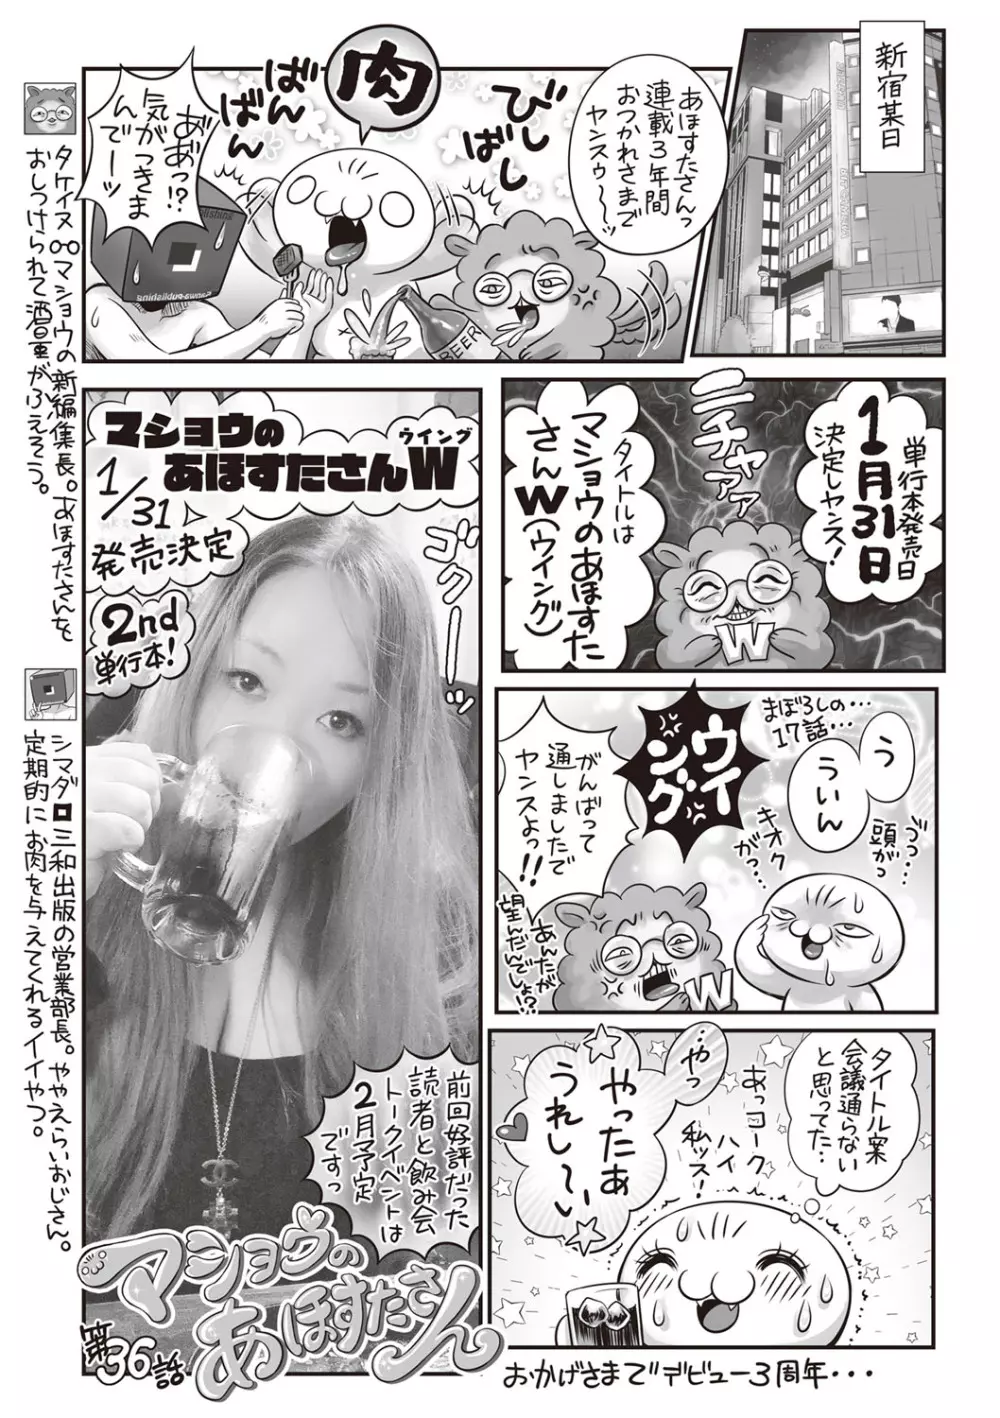 新宿某日
あほすたさんっ
連載3年間
おつかれさまで
ヤンスゥ〜〜ッ
びし
ばし
肉
ばん
ばん
あ゛あ゛っ!?
気がつきま
んでーッ
BEER
単行本発売日
1月31日
決定しヤンス!
ニチャアァァ
タイトルは
マショウのあほすた
さんW(ウイング)
W
まぼろしの…
17話…
う
ういん
頭がっ
キオク
がっ…
ウイ
ング
がんばって
通しましたで
ヤンスよっ!!
あんたが
望んだんでしょ!?
W
タイトル案
会議通らない
と思ってた…
あっコーク
ハイ
私ッス!
やっ
やったぁ
うれし〜い
おかげさまでデビュー3周年・・・
マショウの
あほすたさんW
ウイング
1/31
発売決定
2nd
単行本!
ゴクーーッ
前回好評だった
読者と飲み会
トークイベントは
2月予定
ですっ
マショウの
あほすたさん
第36話
タケイヌ マショウの新編集長。あほすたさんを
おしつけられて酒量がふえそう。
シマダ 三和出版の営業部長。ややえらいおじさん。
定期的にお肉を与えてくれるイイやつ。